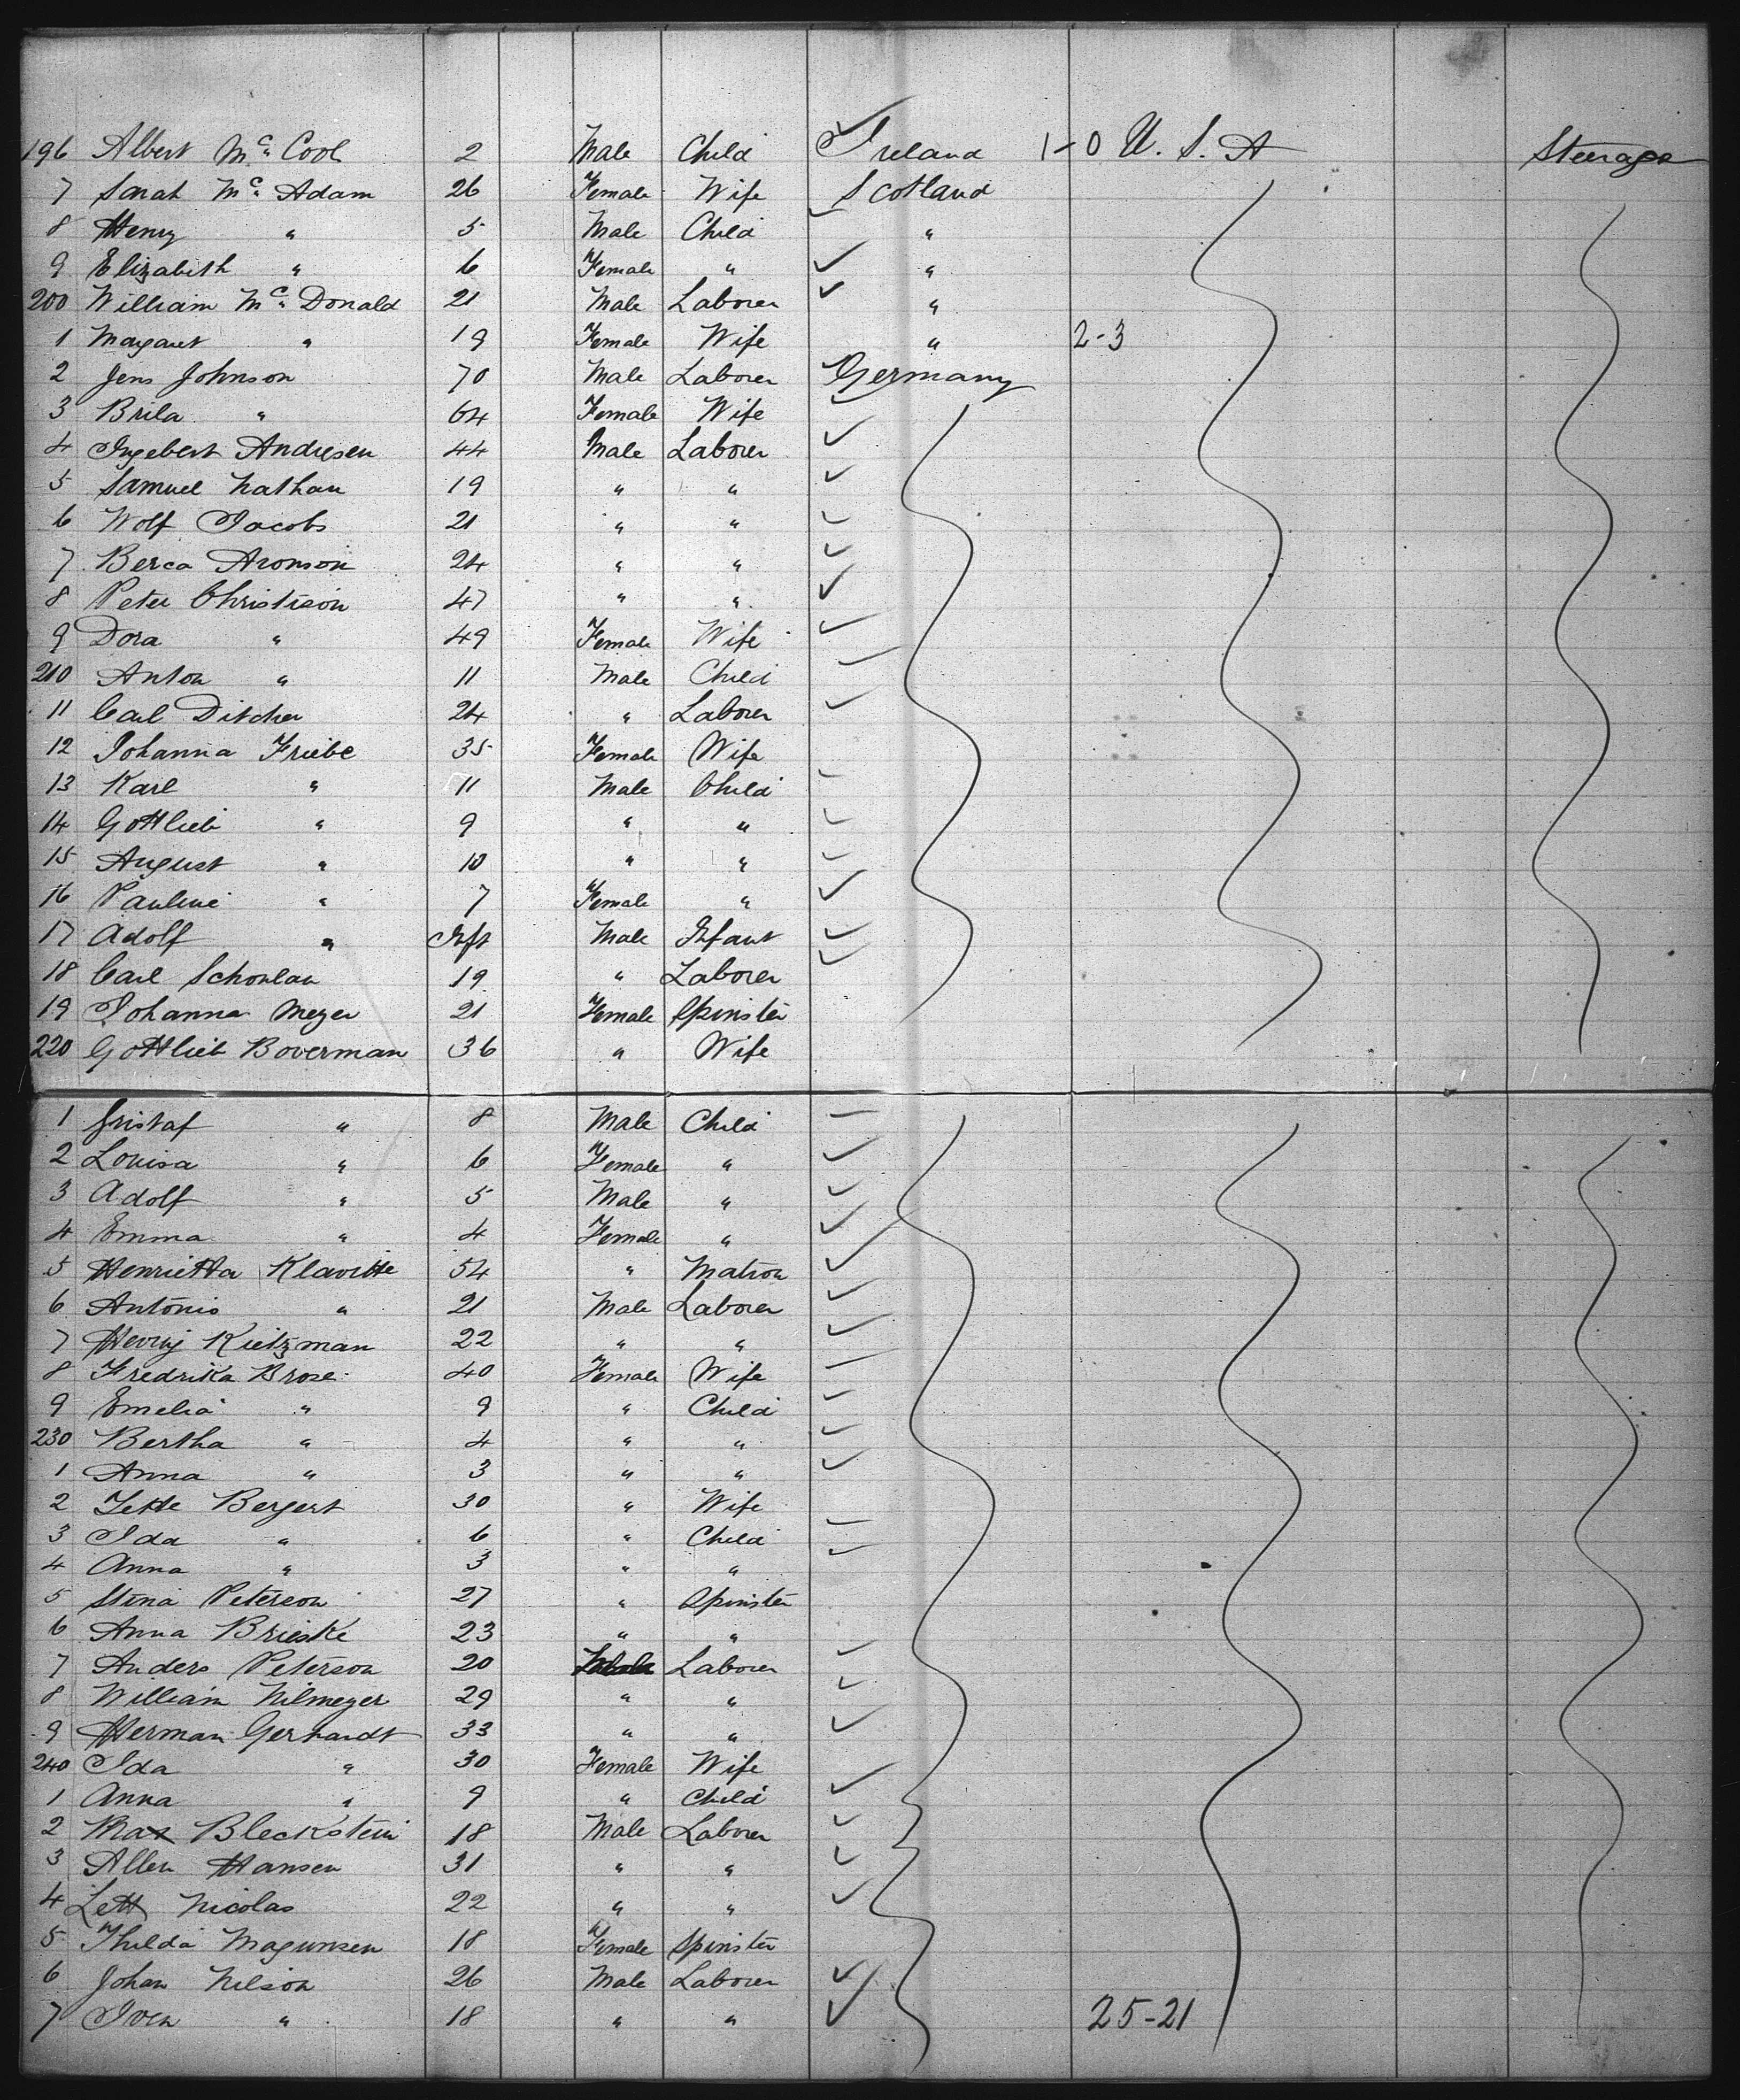 196 Albert Mc Cool 2 Male Child Ireland 1-0 U. S. A Steerage
7 Sarah Mc Adam 26 Female Wife Scotland
8 Henry " 5 Male Child "
9 Elizabeth " 6 Female " "
200 William Mc Donald 21 Male Laborer "
1 Margaret " 19 Female Wife " 2-3
2 Jens Johnson 70 Male Laborer Germany
3 Brila " 64 Female Wife
4 Ingebert Andresen 44 Male Laborer
5 Samuel Nathan 19 " "
6 Wolf Jacobs 21 " "
7 Berca Aronson 24 " "
8 Peter Christison 47 " "
9 Dora " 49 Female Wife
210 Anton " 11 Male Child
11 Carl Ditcher 24 " Laborer
12 Johanna Friebe 35 Female Wife
13 Karl " 11 Male Child
14 Gottlieb " 9 " "
15 August " 10 " "
16 Pauline " 7 Female "
17 Adolf " Inft Male Infant
18 Carl Schonlau 19 " Laborer
19 Johanna Meyer 21 Female Spinster
220 Gottlieb Boverman 36 " Wife
1 Gristaf " 8 Male Child
2 Louisa " 6 Female "
3 Adolf " 5 Male "
4 Emma " 4 Female "
5 Henrietta Klavitte 54 " Matron
6 Antonis " 21 Male Laborer
7 Henry Kietzman 22 " "
8 Fredrika Brose 40 Female Wife
9 Emelia " 9 " Child
230 Bertha " 4 " "
1 Anna " 3 " "
2 Jette Bergert 30 " Wife
3 Ida " 6 " Child
4 Anna " 3 " "
5 Stina Peterson 27 " Spinster
6 Anna Brieske 23 " "
7 Anders Peterson 20 Laborer
8 William Nilmeyer 29 " "
9 Herman Gerhardt 33 " "
240 Ida " 30 Female Wife
1 Anna " 9 " Child
2 Max Bleckstein 18 Male Laborer
3 Allen Hansen 31 " "
4 Lett Nicolas 22 " "
5 Thilda Magunsen 18 Female Spinster
6 Johan Nilson 26 Male Laborer
7 Iven " 18 " " 25-21